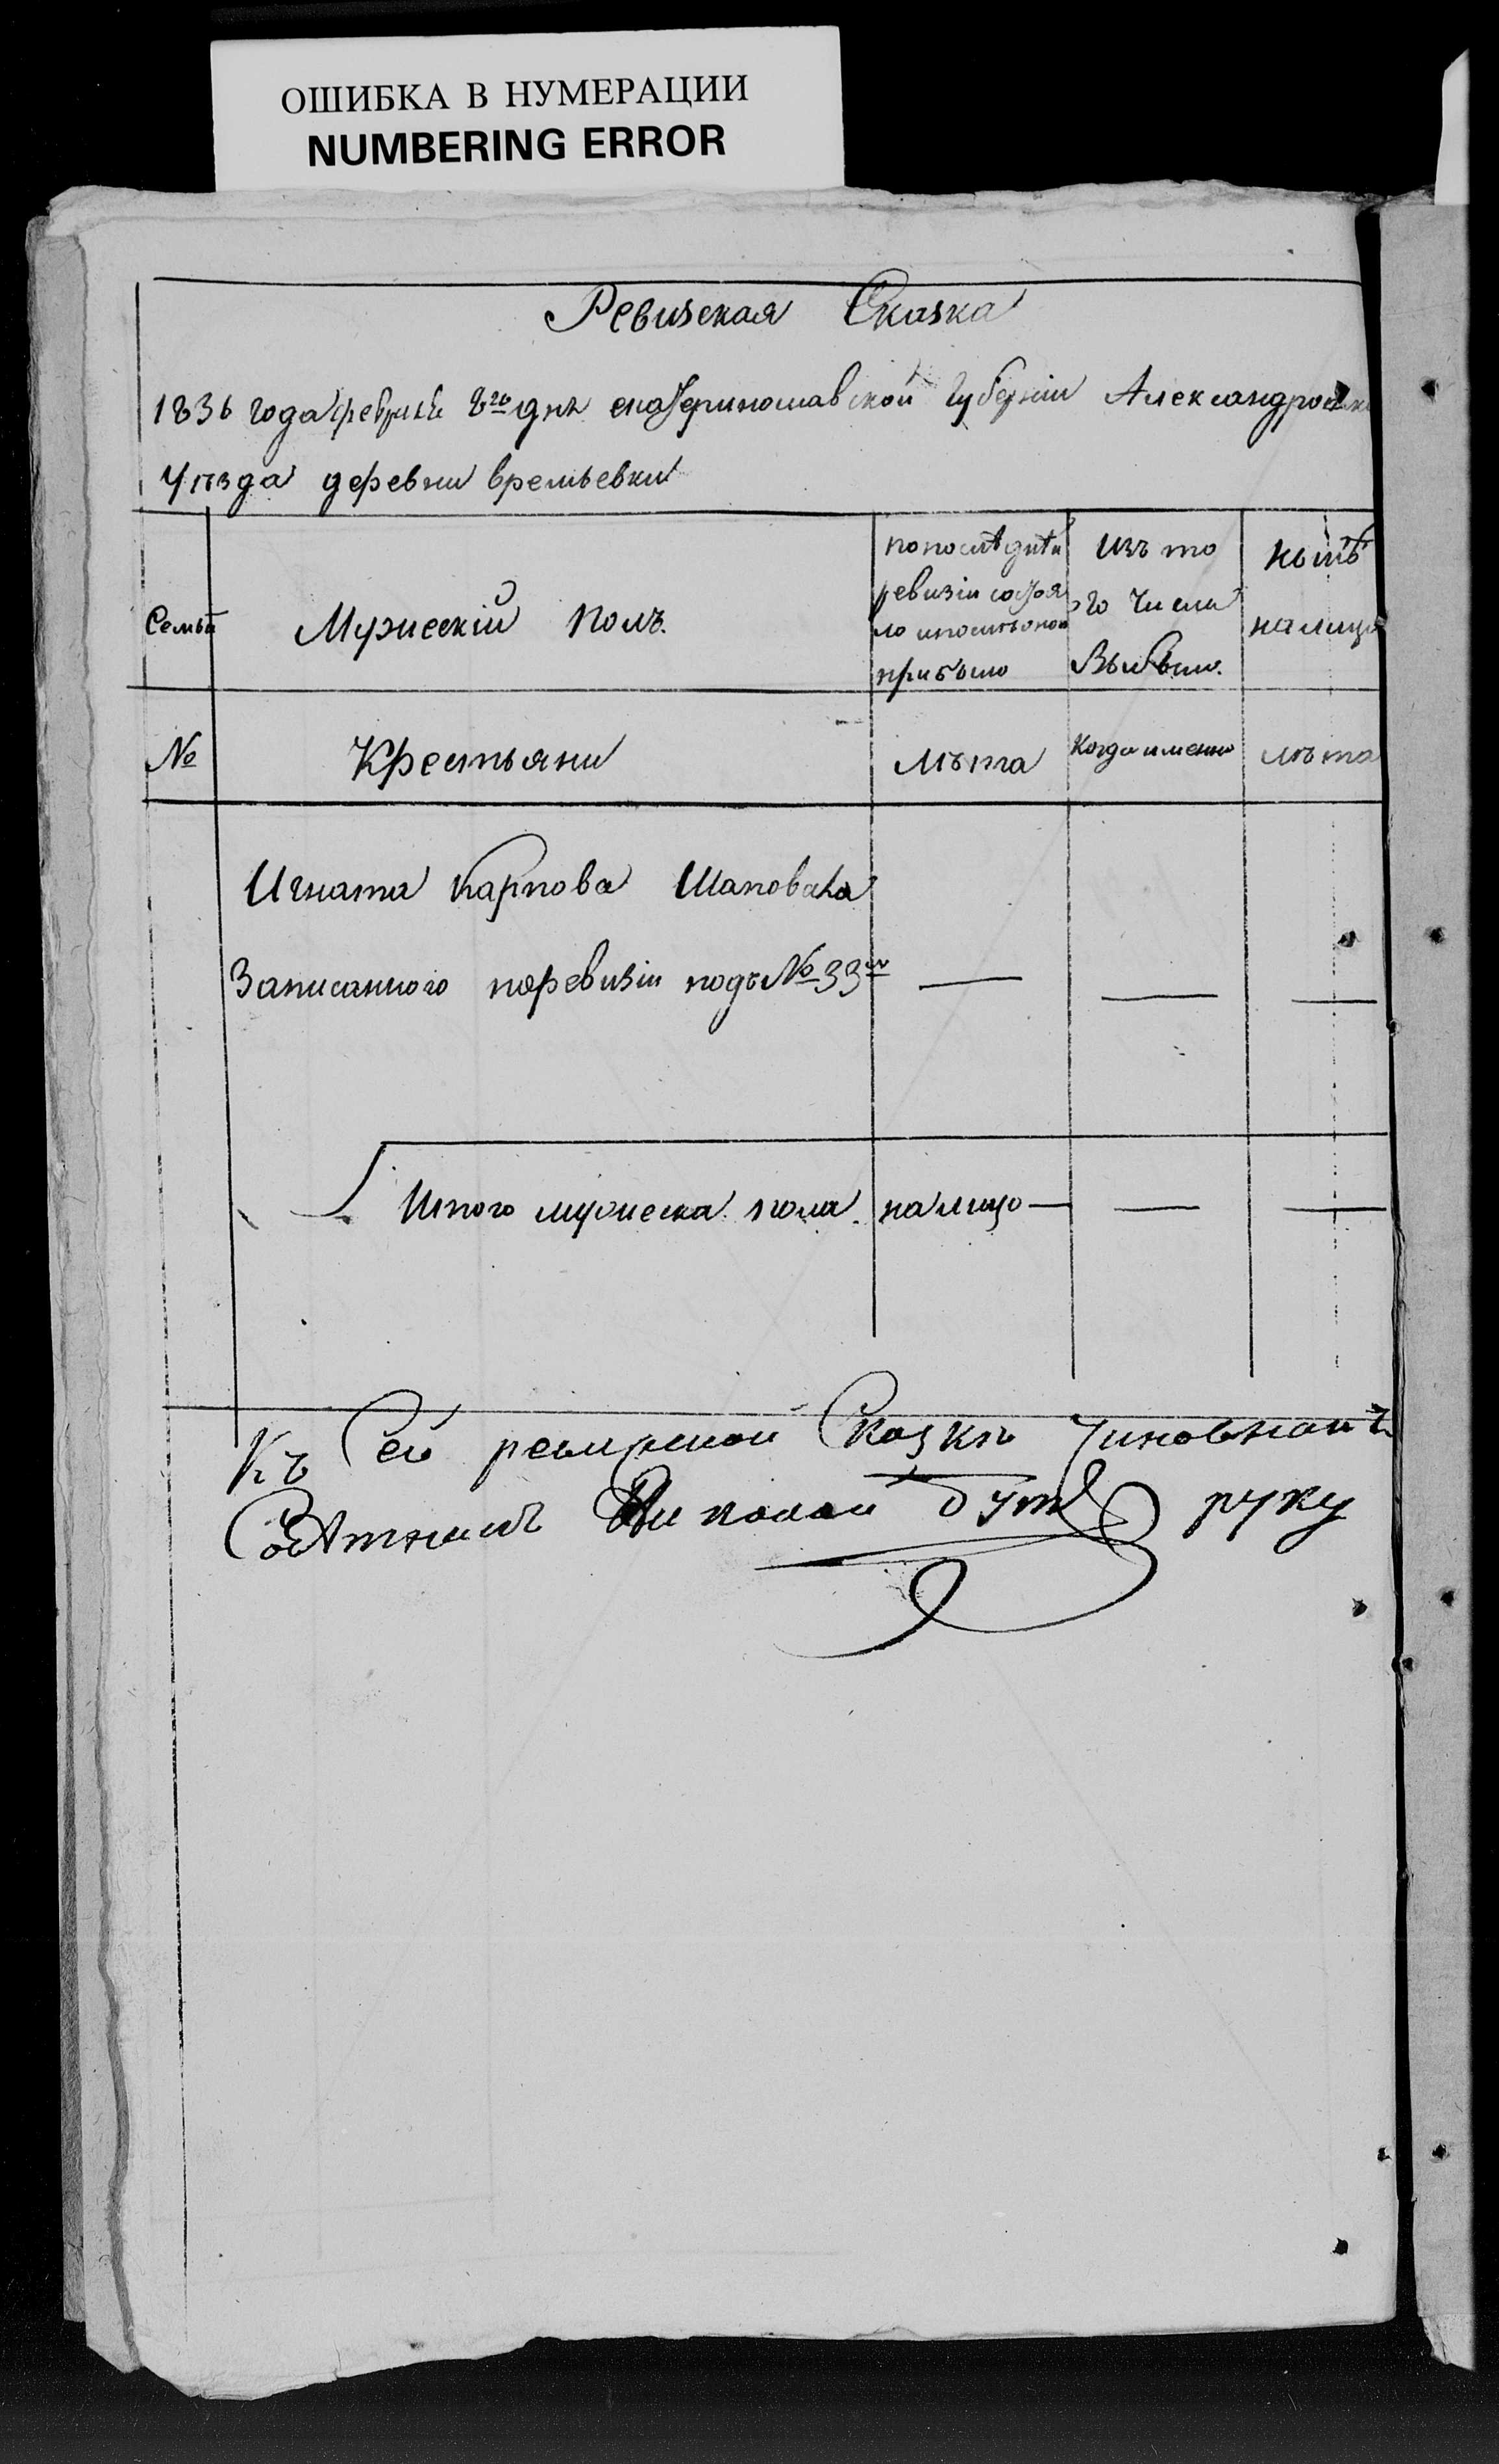 ОШИБКА В НУМЕРАЦИИ
NUMBERING ERROR
Ревизская Сказка
1836 года февраля 8го дня екатеринославской губерніи Александровско
уѣзда деревни времьевки
Семьи
Мужескій полъ.
по последнѣй
ревизіи состоя
ло и после оной
прибыло
изъ то
го числа
Выбыло.
нынѣ
налицо
№
Крестьяни
лѣта
Когда именно
лѣта
Игната Карпова Шаповала
Записанного по ревизіи подъ № 33м
Итого мужеска пола налицо
Къ сей ревизской Сказкѣ
Николай руку